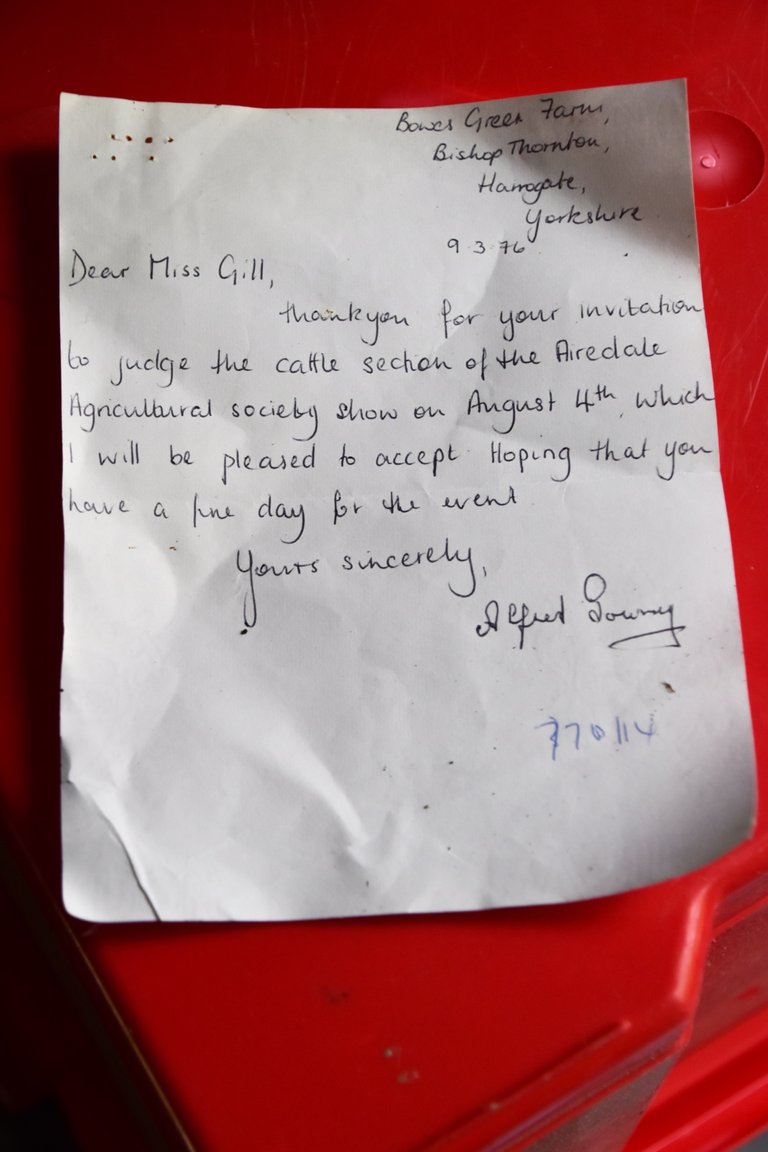 Bowes Green Farm,
Bishop Thornton,
Harrogate,
Yorkshire
9.3.76
Dear Miss Gill,
thankyou for your invitation
to judge the cattle section of the Airedale
Agricultural society show on August 4th, which
I will be pleased to accept. Hoping that you
have a fine day for the event.
Yours sincerely,
Alfred
770114